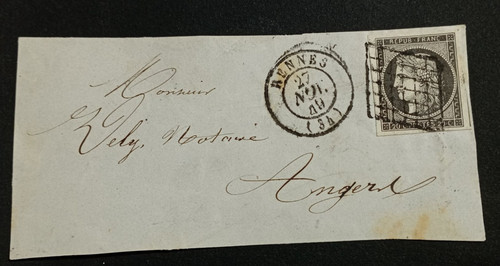 REPUB. FRANC.
RENNES
27
NOV.
49
(34)
20 C 20 C
Monsieur
Rely, Notaire
Angers